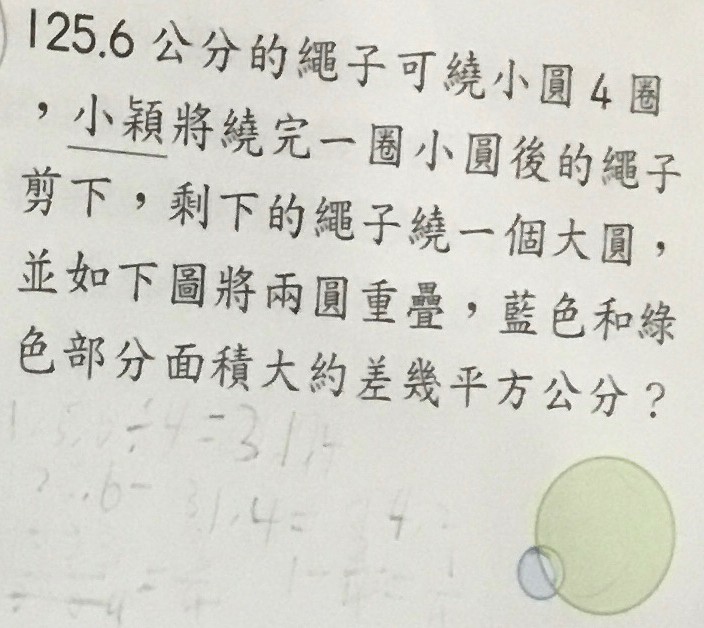 125.6 公分的繩子可繞小圓 4 圈
，小穎將繞完一圈小圓後的繩子
剪下，剩下的繩子繞一個大圓，
並如下圖將兩圓重疊，藍色和綠
色部分面積大約差幾平方公分？
÷4=31.4
.6- 31.4=